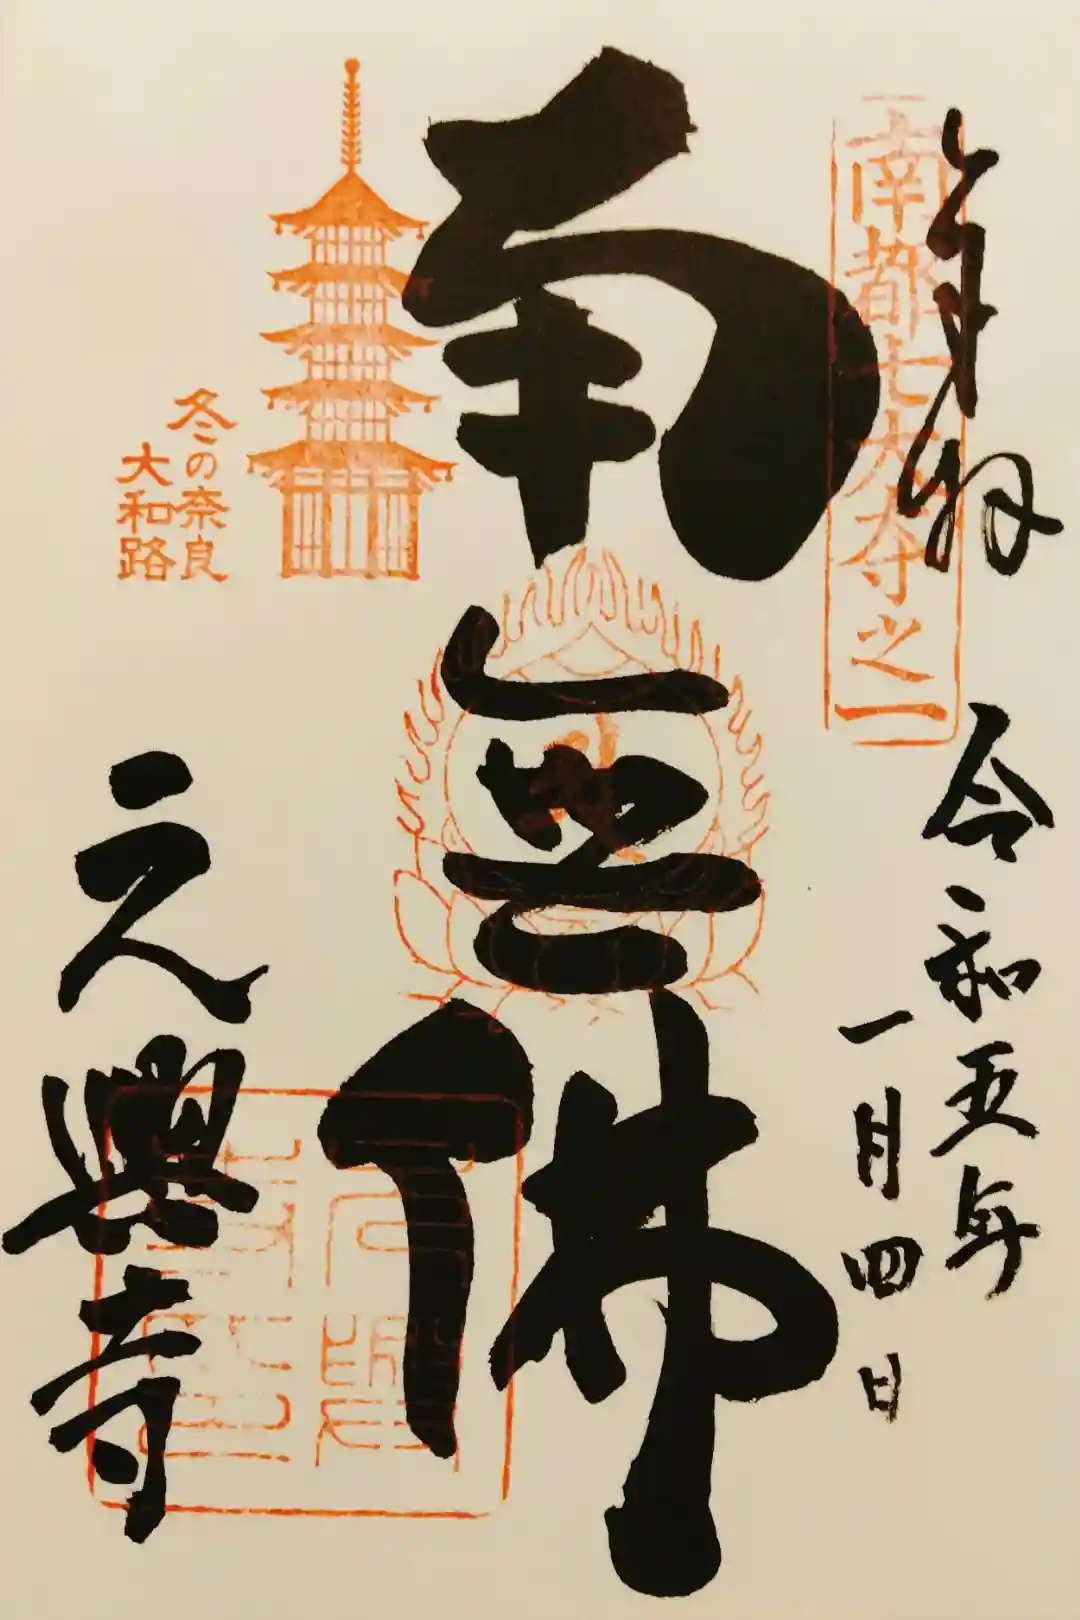 奉拝
南都七大寺之一
令和五年
一月四日
南無佛
冬の奈良
大和路
元興寺